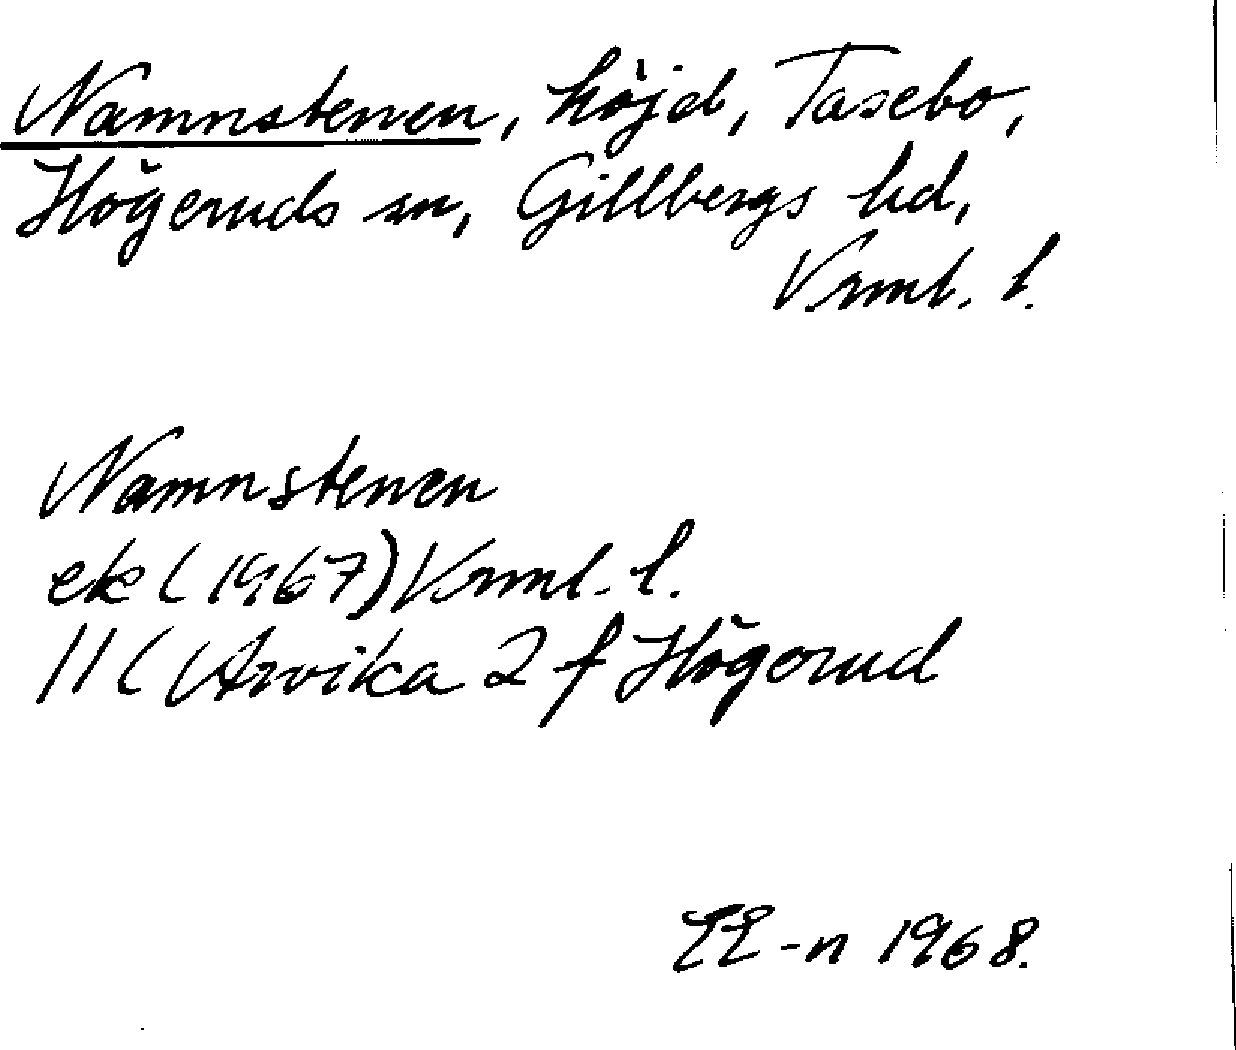 Namnstenen, höjd, Tasebo,
Högeruds sn, Gillbergs hd,
Vrml. l.
Namnstenen
ek (1967) Vrml. l.
11 C Arvika 2 f Högerud
EE-n 1968.